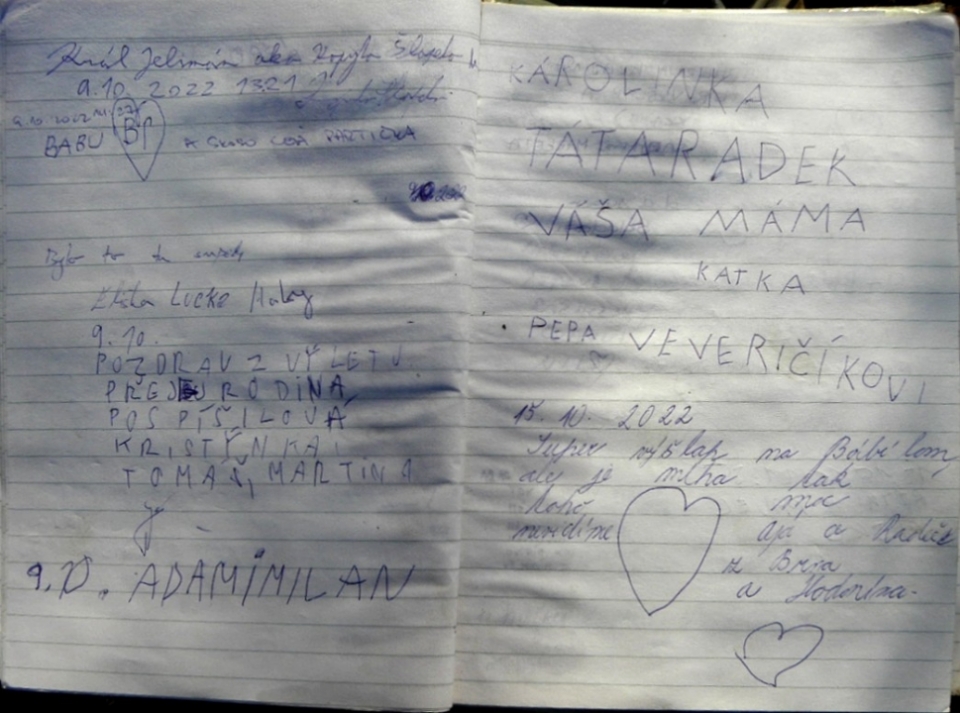 Král Jelimán aka Kopyto
9.10. 2022 1321
9.10.2022
BABU BP
PARTIČKA
Bylo to tu
Lucka
9.10.
POZDRAV Z VÝLETU
PŘEJE RODINA
POSPÍŠILOVÁ
KRISTÝNKA,
TOMÁŠ, MARTINA
9.10. ADAM I MILAN
KAROLINKA
TÁTA RADEK
VÁŠA MÁMA
KATKA
PEPA VEVERIČÍKOVI
15.10. 2022
Super výšlap na Bábí lom,
ale je mlha tak
toho moc
nevidíme Ája a Radek
z Brna
a Hodonína.